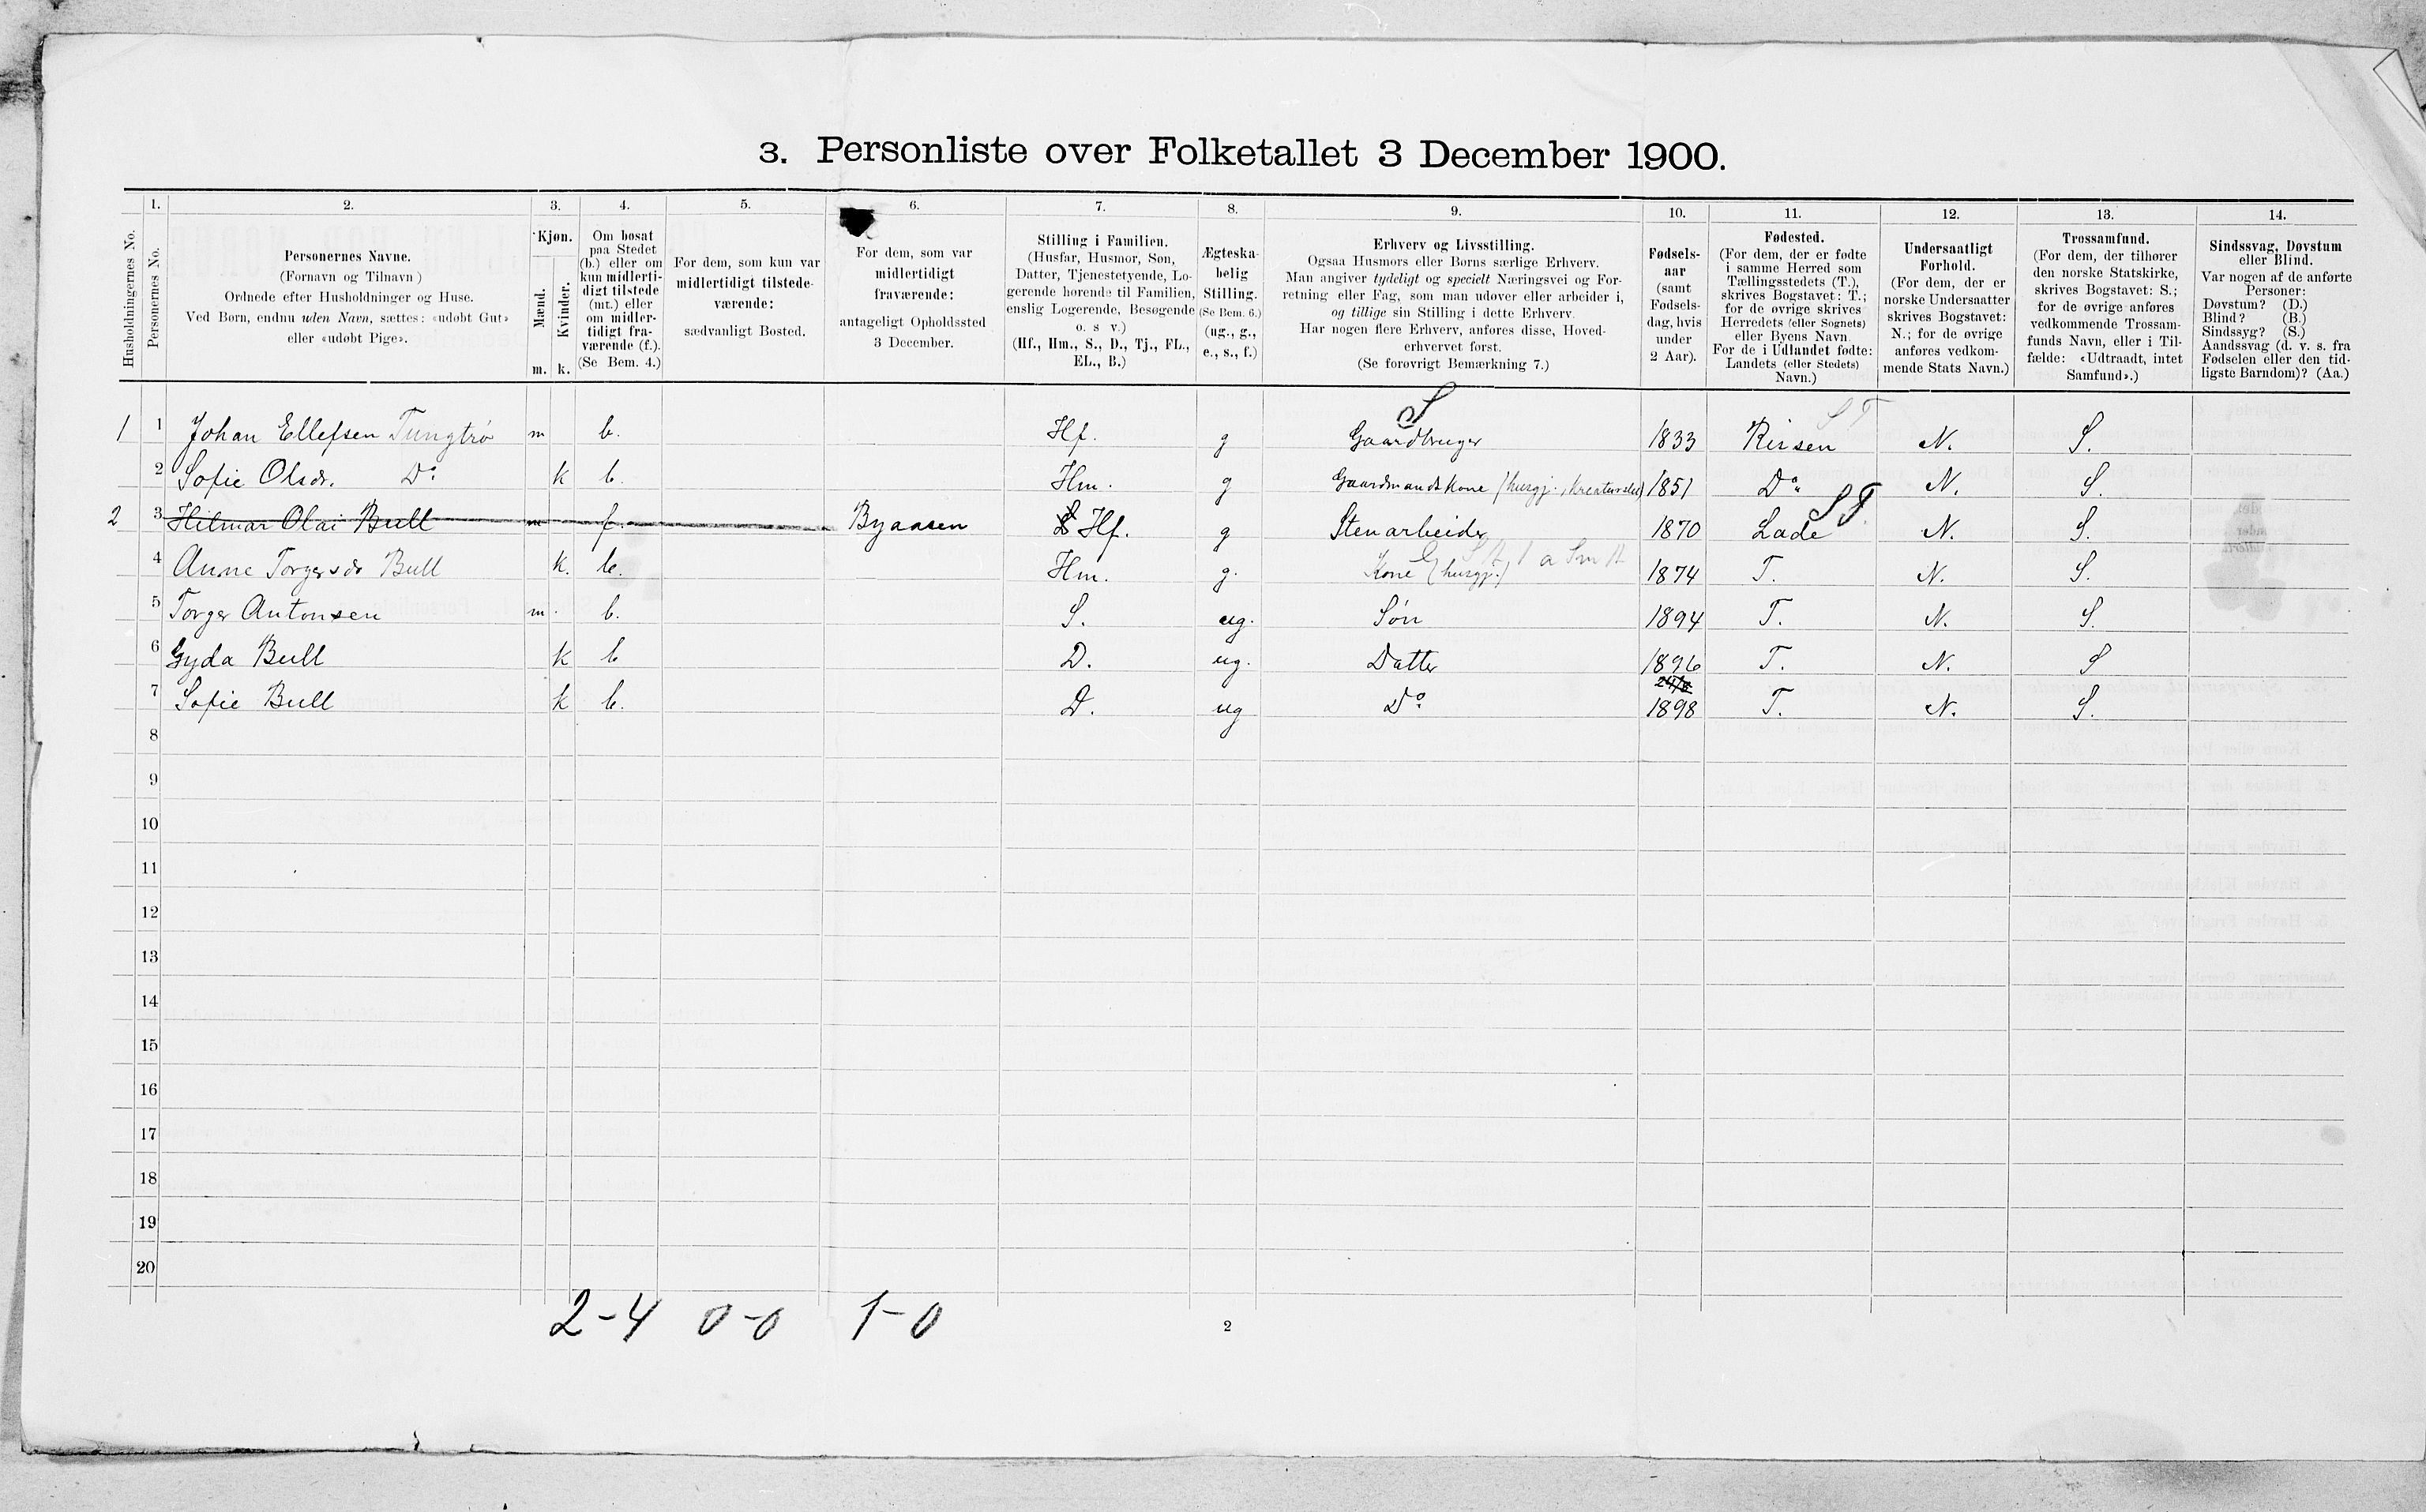 3. Personliste over Folketallet 3 December 1900.
1. 2. 3. 4. 5. 6. 7. 8. 9. 10. 11. 12. 13. 14.
Husholdningernes No.
Personernes No.
Personernes Navne.
(Fornavn og Tilnavn)
Ordnede efter Husholdninger og Huse.
Ved Børn, endnu uden Navn, sættes: «udøbt Gut»
eller «udøbt Pige».
Kjøn.
Mænd.
Kvinder.
m. k.
Om bosat
paa Stedet
(b.) eller om
kun midlerti-
digt tilstede
(mt.) eller
om midler-
tidigt fra-
værende (f.).
(Se Bem. 4.)
For dem, som kun var
midlertidigt tilstede-
værende:
sædvanligt Bosted.
For dem, som var
midlertidigt
fraværende:
antageligt Opholdssted
3 December.
Stilling i Familien.
(Husfar, Husmor, Søn,
Datter, Tjenestetyende, Lo-
gerende hørende til Familien,
enslig Logerende, Besøgende
o. s v.)
(Hf., Hm., S., D., Tj., FL.,
EL., B.)
Ægteska-
belig
Stilling.
(Se Bem. 6.)
(ug., g.,
e., s., f.)
Erhverv og Livsstilling.
Ogsaa Husmors eller Børns særlige Erhverv.
Man angiver tydeligt og specielt Næringsvei og For-
retning eller Fag, som man udøver eller arbeider i,
og tillige sin Stilling i dette Erhverv.
Har nogen flere Erhverv, anføres disse, Hoved-
erhvervet først.
(Se forøvrigt Bemærkning 7.)
Fødsels-
aar
(samt
Fødsels-
dag, hvis
under
2 Aar).
Fødested.
(For dem, der er fødte
i samme Herred som
Tællingsstedets (T.),
skrives Bogstavet: T.;
for de øvrige skrives
Herredets (eller Sognets)
eller Byens Navn.
For de i Udlandet fødte:
Landets (eller Stedets)
Navn.)
Undersaatligt
Forhold.
(For dem, der er
norske Undersaatter
skrives Bogstavet:
N.; for de øvrige
anføres vedkom-
mende Stats Navn.)
Trossamfund.
(For dem, der tilhører
den norske Statskirke,
skrives Bogstavet: S.;
for de øvrige anføres
vedkommende Trossam-
funds Navn, eller i Til-
fælde: «Udtraadt, intet
Samfund».)
Sindssvag, Døvstum
eller Blind.
Var nogen af de anførte
Personer:
Døvstum? (D.)
Blind? (B.)
Sindssyg? (S.)
Aandssvag (d. v. s. fra
Fødselen eller den tid-
ligste Barndom)? (Aa.)
S S T
1 1 Johan Ellefsen Tungtrø m b. Hf. g Gaardbruger 1833 Rissen N. S.
2 Sofie Olsdr. Do k b. Hm. g Gaardmandskone (husgj., kreaturstel) 1851 Do N. S.
S T
2 3 Hilmar Olai Bull m f. Byaasen Hf. g Stenarbeider 1870 Lade N. S.
4 Anne Torgersdr Bull k. b. Hm. g. Kone (husgj.) 1874 T. N. S.
5 Torger Antonsen m. b. S. ug. Søn 1894 T. N. S.
6 Gyda Bull k b D. ug. Datter 1896 T. N. S
7 Sofie Bull k b. D. ug Do 1898 T. N. S.
8
9
10
11
12
13
14
15
16
17
18
19
20
2-4 0-0 1-0
2